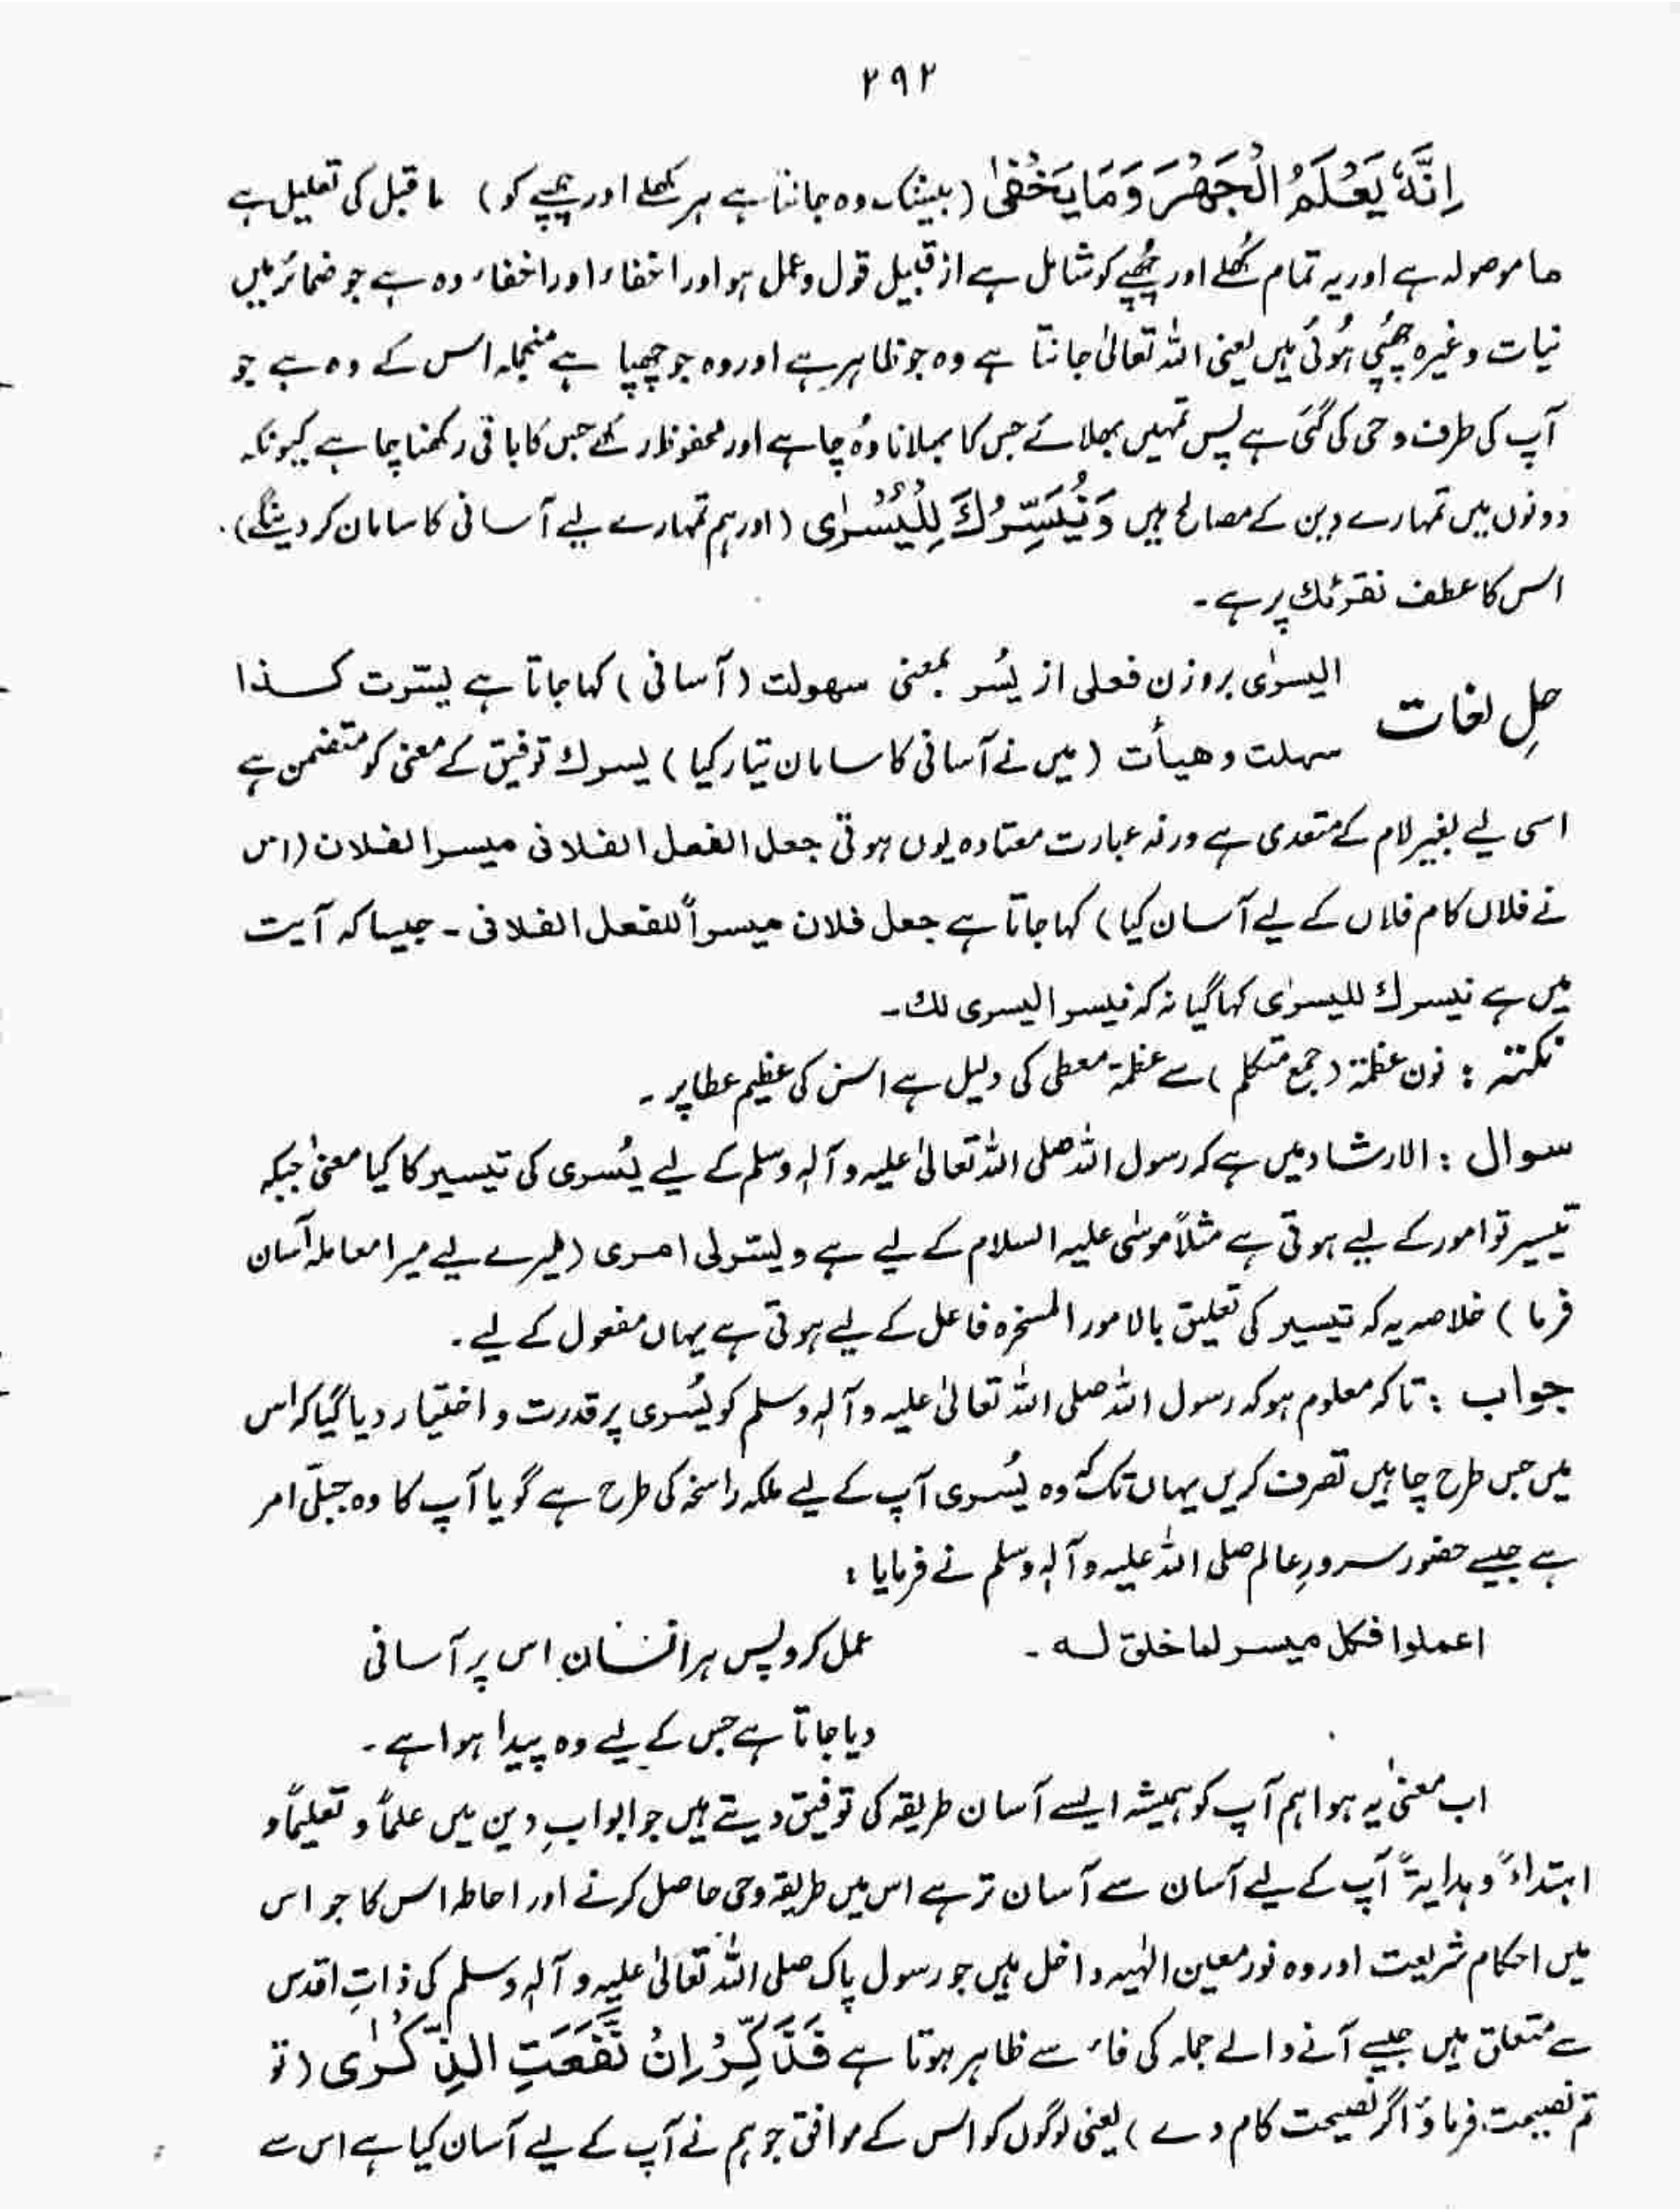 ۲۹۲
اِنَّهٗ يَعْلَمُ الْجَهْرَ وَمَا يَخْفٰى (بیشک وہ جانتا ہے ہر کھلے اور چھپے کو) ماقبل کی تعلیل ہے
ما موصولہ ہے اور یہ تمام کُھلے اور چُھپے کو شامل ہے از قبیل قول و عمل ہو اور اخفاء اور اخفاء وہ ہے جو ضمائر میں
نیات وغیرہ چُھپی ہُوئی ہیں یعنی اللہ تعالیٰ جانتا ہے وہ جو ظاہر ہے اور وہ جو چھپا ہے منجملہ اس کے وہ ہے جو
آپ کی طرف وحی کی گئی ہے پس تمہیں بھلائے جس کا بھلانا وُہ چاہے اور محفوظ رکھے جس کا باقی رکھنا چاہے کیونکہ
دونوں میں تمہارے دین کے مصالح ہیں وَنُيَسِّرُكَ لِلْيُسْرٰى (اور ہم تمہارے لیے آسانی کا سامان کر دینگے)۔
اس کا عطف نقرئك پر ہے۔
حلِ لغات الیسرٰی بروزن فعلی از یُسر بمعنی سهولت (آسانی) کہا جاتا ہے یسّرت کذا
سهلت و هيأت (میں نے آسانی کا سامان تیار کیا) یسرك توفیق کے معنی کو متضمن ہے
اسی لیے بغیر لام کے متعدی ہے ورنہ عبارت معتادہ یوں ہوتی جعل الفعل الفلانی میسرا لفلان (اس
نے فلاں کام فلاں کے لیے آسان کیا) کہا جاتا ہے جعل فلان میسراً للفعل الفلانی۔ جیسا کہ آیت
میں ہے نیسرك للیسرٰی کہا گیا نہ کہ نیسر الیسری لك۔
نکتہ : نون عظمۃ (جمع متکلم) سے عظمۃ معطی کی دلیل ہے اس کی عظیم عطا پر۔
سوال : الارشاد میں ہے کہ رسول اللہ صلی اللہ تعالیٰ علیہ وآلہٖ وسلم کے لیے یُسری کی تیسیر کا کیا معنیٰ جبکہ
تیسیر تو امور کے لیے ہوتی ہے مثلاً موسٰی علیہ السلام کے لیے ہے ویسّرلی امری (میرے لیے میرا معاملہ آسان
فرما) خلاصہ یہ کہ تیسیر کی تعلیق بالامور المسخرہ فاعل کے لیے ہوتی ہے یہاں مفعول کے لیے۔
جواب : تاکہ معلوم ہو کہ رسول اللہ صلی اللہ تعالیٰ علیہ وآلہٖ وسلم کو یُسری پر قدرت و اختیار دیا گیا کہ اس
میں جس طرح چاہیں تصرف کریں یہاں تک کہ وہ یُسری آپ کے لیے ملکہ راسخہ کی طرح ہے گویا آپ کا وہ جبلّی امر
ہے جیسے حضور سرورِ عالم صلی اللہ علیہ وآلہٖ وسلم نے فرمایا :
اعملوا فکل میسر لما خلق له۔ عمل کرو پس ہر انسان اس پر آسانی
دیا جاتا ہے جس کے لیے وہ پیدا ہوا ہے۔
اب معنیٰ یہ ہوا ہم آپ کو ہمیشہ ایسے آسان طریقہ کی توفیق دیتے ہیں جو ابوابِ دین میں علماً و تعلیماً و
ابتداءً و ہدایۃً آپ کے لیے آسان سے آسان تر ہے اس میں طریقہ وحی حاصل کرنے اور احاطہ اس کا جو اس
میں احکام شریعت اور وہ نور معین الٰہیہ داخل ہیں جو رسول پاک صلی اللہ تعالیٰ علیہ وآلہٖ وسلم کی ذاتِ اقدس
سے متعلق ہیں جیسے آنے والے جملہ کی فاء سے ظاہر ہوتا ہے فَذَكِّرْ اِنْ نَّفَعَتِ الذِّكْرٰى (تو
تم نصیحت فرماؤ اگر نصیحت کام دے) یعنی لوگوں کو اس کے موافق جو ہم نے آپ کے لیے آسان کیا ہے اس سے